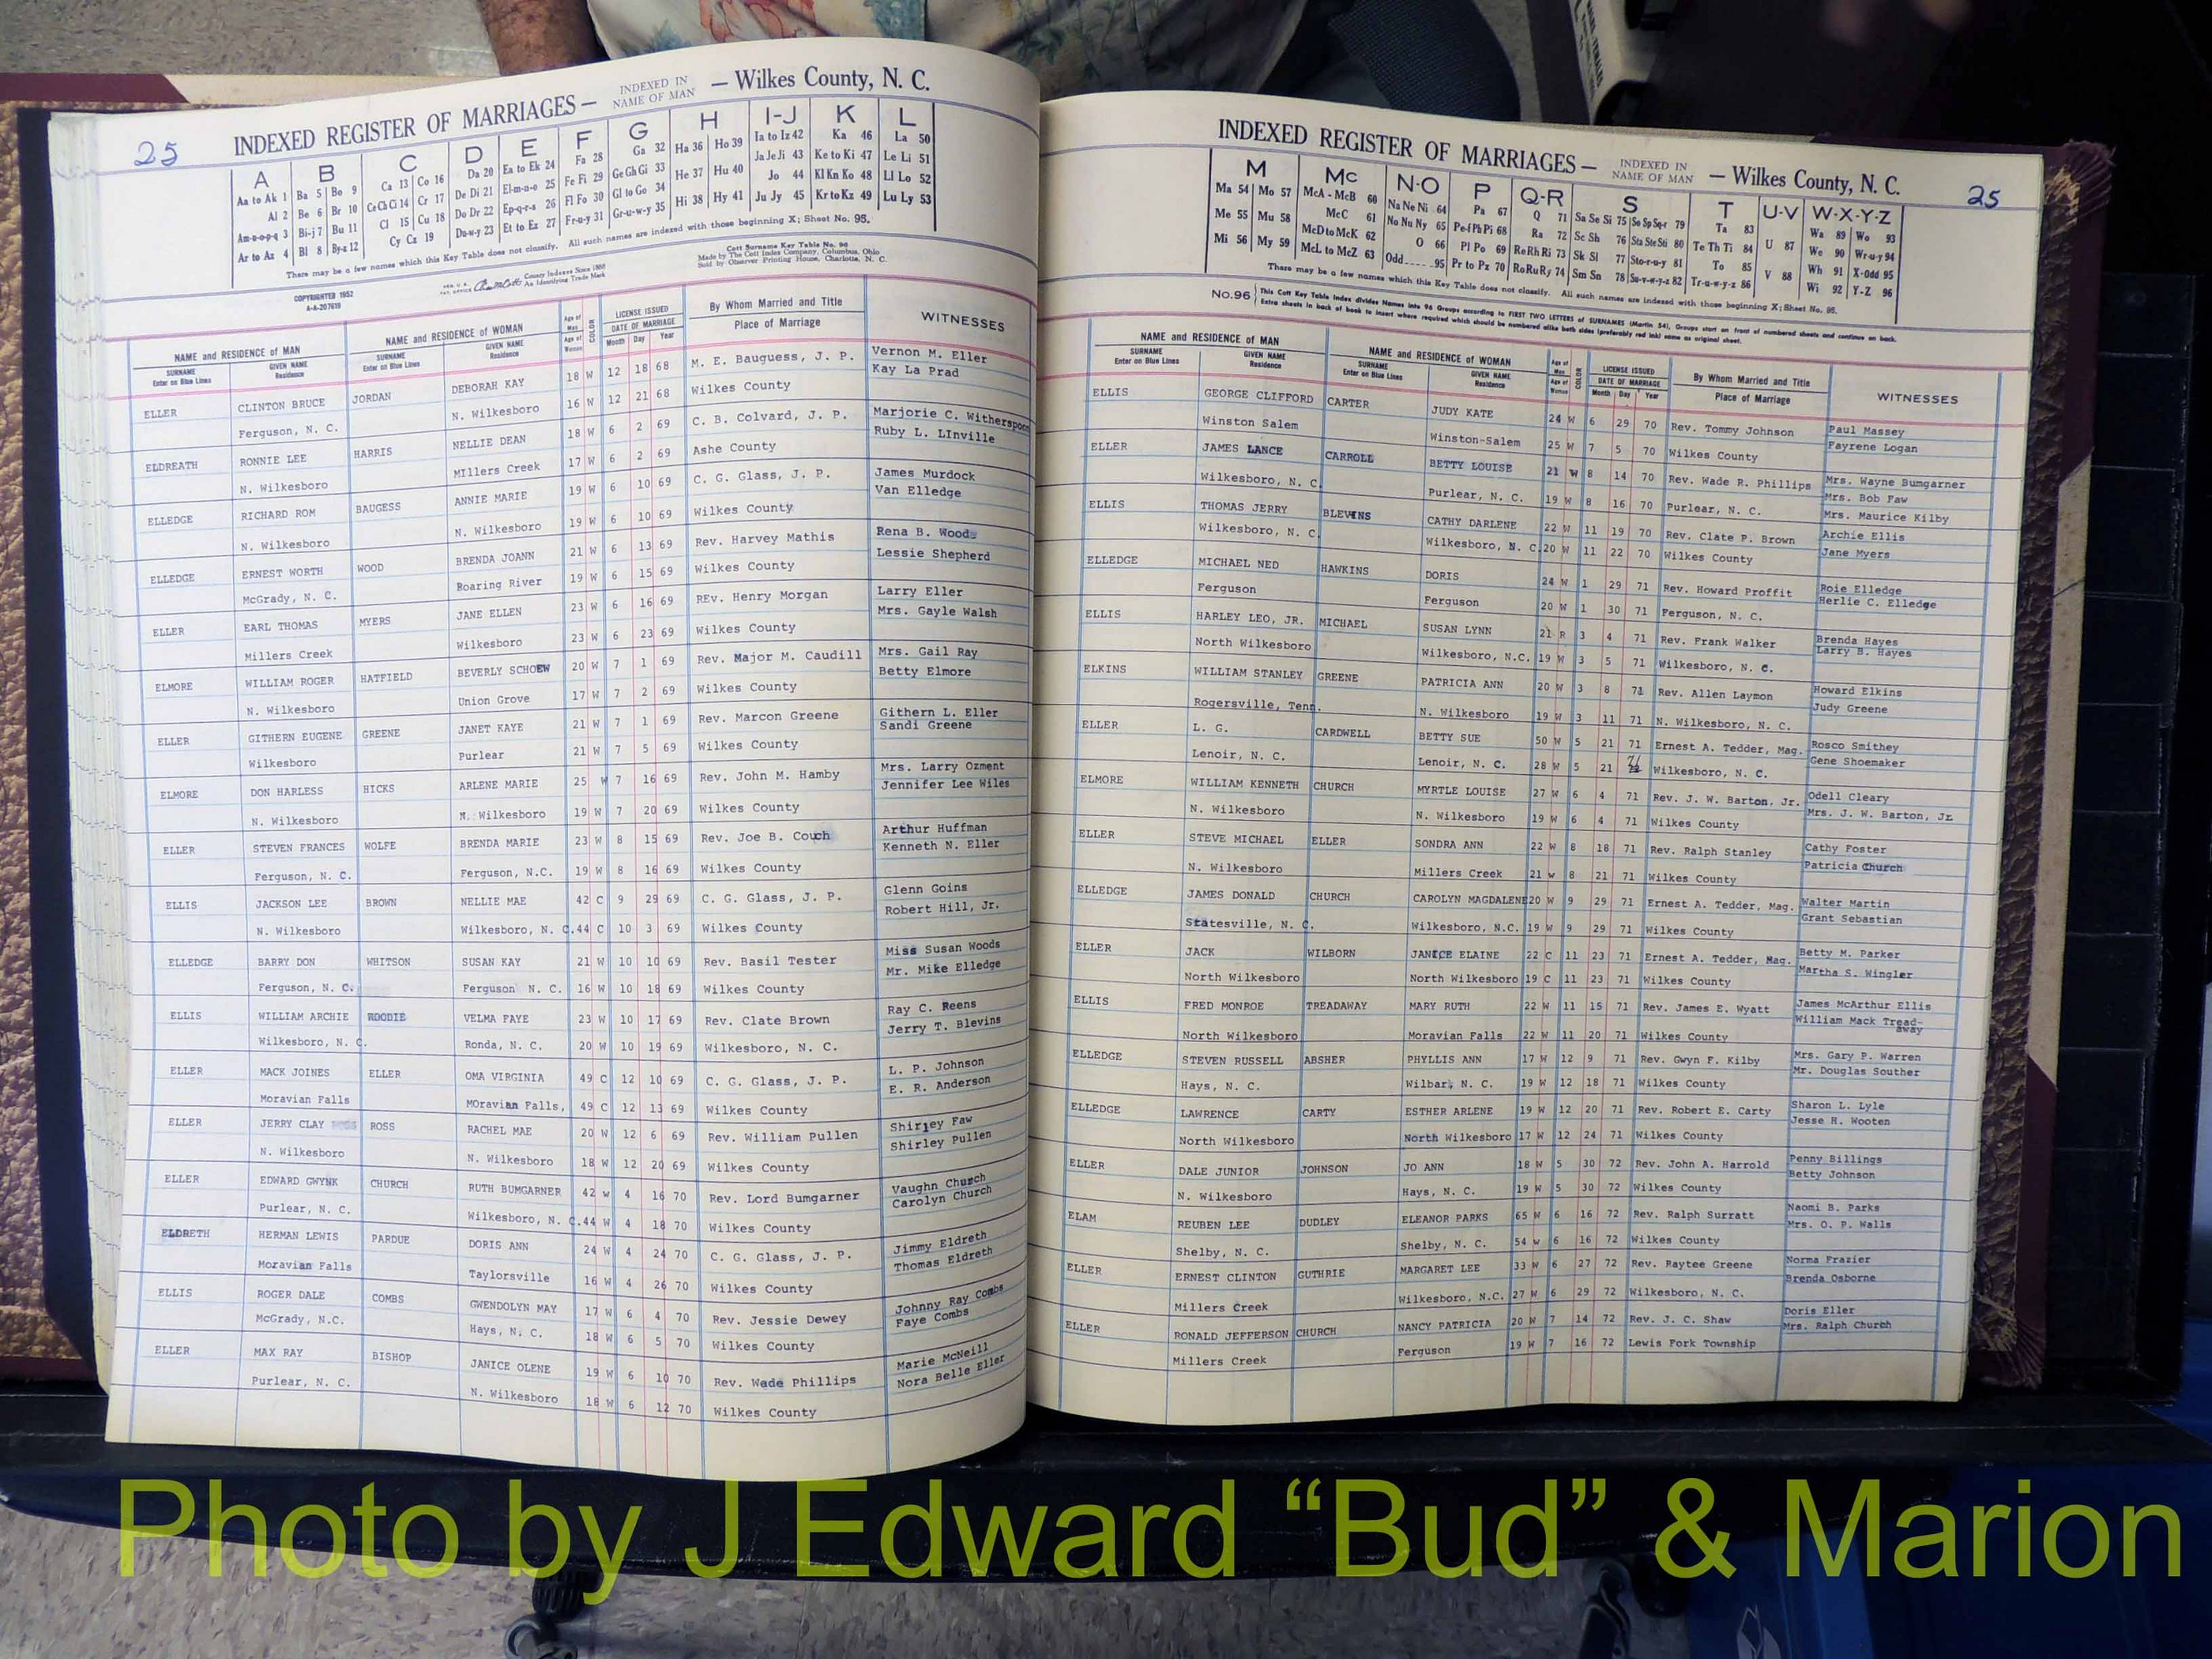 25
INDEXED REGISTER OF MARRIAGES— INDEXED IN NAME OF MAN — Wilkes County, N. C.
A B C D E F G H I-J K L
Aa to Ak 1 Ba 5 Bo 9 Ca 13 Co 16 Da 20 Ea to Ek 24 Fa 28 Ga 32 Ha 36 Ho 39 Ia to Iz 42 Ka 46 La 50
Al 2 Be 6 Br 10 Ce Ch Ci 14 Cr 17 De Di 21 El-m-n-o 25 Fe Fi 29 Ge Gh Gi 33 He 37 Hu 40 Ja Je Ji 43 Ke to Ki 47 Le Li 51
Am-n-o-p-q 3 Bi-j 7 Bu 11 Cl 15 Cu 18 Do Dr 22 Ep-q-r-s 26 Fl Fo 30 Gl to Go 34 Hi 38 Hy 41 Jo 44 Kl Kn Ko 48 Ll Lo 52
Ar to Az 4 Bl 8 By-z 12 Cy Cz 19 Du-w-y 23 Et to Ez 27 Fr-u-y 31 Gr-u-w-y 35 Ju Jy 45 Kr to Kz 49 Lu Ly 53
There may be a few names which this Key Table does not classify. All such names are indexed with those beginning X; Sheet No. 95.
COPYRIGHTED 1952
A-A-207619
County Indexes Since 1888
An Identifying Trade Mark
Cott Surname Key Table No. 96
Made by The Cott Index Company, Columbus, Ohio
Sold by Observer Printing House, Charlotte, N. C.
NAME and RESIDENCE of MAN NAME and RESIDENCE of WOMAN Age of Man COLOR LICENSE ISSUED By Whom Married and Title WITNESSES
SURNAME Enter on Blue Lines GIVEN NAME Residence SURNAME Enter on Blue Lines GIVEN NAME Residence Age of Woman DATE OF MARRIAGE Month Day Year Place of Marriage
ELLER CLINTON BRUCE JORDAN DEBORAH KAY 18 W 12 18 68 M. E. Bauguess, J. P. Vernon M. Eller
Ferguson, N. C. N. Wilkesboro 16 W 12 21 68 Wilkes County Kay La Prad
ELDREATH RONNIE LEE HARRIS NELLIE DEAN 18 W 6 2 69 C. B. Colvard, J. P. Marjorie C. Witherspoon
N. Wilkesboro MIllers Creek 17 W 6 2 69 Ashe County Ruby L. LInville
ELLEDGE RICHARD ROM BAUGESS ANNIE MARIE 19 W 6 10 69 C. G. Glass, J. P. James Murdock
N. Wilkesboro N. Wilkesboro 19 W 6 10 69 Wilkes County Van Elledge
ELLEDGE ERNEST WORTH WOOD BRENDA JOANN 21 W 6 13 69 Rev. Harvey Mathis Rena B. Woods
McGrady, N. C. Roaring River 19 W 6 15 69 Wilkes County Lessie Shepherd
ELLER EARL THOMAS MYERS JANE ELLEN 23 W 6 16 69 REv. Henry Morgan Larry Eller
Millers Creek Wilkesboro 23 W 6 23 69 Wilkes County Mrs. Gayle Walsh
ELMORE WILLIAM ROGER HATFIELD BEVERLY SCHOEW 20 W 7 1 69 Rev. Major M. Caudill Mrs. Gail Ray
N. Wilkesboro Union Grove 17 W 7 2 69 Wilkes County Betty Elmore
ELLER GITHERN EUGENE GREENE JANET KAYE 21 W 7 1 69 Rev. Marcon Greene Githern L. Eller
Wilkesboro Purlear 21 W 7 5 69 Wilkes County Sandi Greene
ELMORE DON HARLESS HICKS ARLENE MARIE 25 W 7 16 69 Rev. John M. Hamby Mrs. Larry Ozment
N. Wilkesboro N. Wilkesboro 19 W 7 20 69 Wilkes County Jennifer Lee Wiles
ELLER STEVEN FRANCES WOLFE BRENDA MARIE 23 W 8 15 69 Rev. Joe B. Couch Arthur Huffman
Ferguson, N. C. Ferguson, N.C. 19 W 8 16 69 Wilkes County Kenneth N. Eller
ELLIS JACKSON LEE BROWN NELLIE MAE 42 C 9 29 69 C. G. Glass, J. P. Glenn Goins
N. Wilkesboro Wilkesboro, N. C. 44 C 10 3 69 Wilkes County Robert Hill, Jr.
ELLEDGE BARRY DON WHITSON SUSAN KAY 21 W 10 10 69 Rev. Basil Tester Miss Susan Woods
Ferguson, N. C. Ferguson N. C. 16 W 10 18 69 Wilkes County Mr. Mike Elledge
ELLIS WILLIAM ARCHIE ROODIE VELMA FAYE 23 W 10 17 69 Rev. Clate Brown Ray C. Reens
Wilkesboro, N. C. Ronda, N. C. 20 W 10 19 69 Wilkesboro, N. C. Jerry T. Blevins
ELLER MACK JOINES ELLER OMA VIRGINIA 49 C 12 10 69 C. G. Glass, J. P. L. P. Johnson
Moravian Falls MOravian Falls, 49 C 12 13 69 Wilkes County E. R. Anderson
ELLER JERRY CLAY ROSS RACHEL MAE 20 W 12 6 69 Rev. William Pullen Shirley Faw
N. Wilkesboro N. Wilkesboro 18 W 12 20 69 Wilkes County Shirley Pullen
ELLER EDWARD GWYNK CHURCH RUTH BUMGARNER 42 w 4 16 70 Rev. Lord Bumgarner Vaughn Church
Purlear, N. C. Wilkesboro, N. C. 44 W 4 18 70 Wilkes County Carolyn Church
ELDRETH HERMAN LEWIS PARDUE DORIS ANN 24 W 4 24 70 C. G. Glass, J. P. Jimmy Eldreth
Moravian Falls Taylorsville 16 W 4 26 70 Wilkes County Thomas Eldreth
ELLIS ROGER DALE COMBS GWENDOLYN MAY 17 W 6 4 70 Rev. Jessie Dewey Johnny Ray Combs
McGrady, N.C. Hays, N. C. 18 W 6 5 70 Wilkes County Faye Combs
ELLER MAX RAY BISHOP JANICE OLENE 19 W 6 10 70 Rev. Wade Phillips Marie McNeill
Purlear, N. C. N. Wilkesboro 18 W 6 12 70 Wilkes County Nora Belle Eller
INDEXED REGISTER OF MARRIAGES— INDEXED IN NAME OF MAN — Wilkes County, N. C.
25
M Mc N-O P Q-R S T U-V W-X-Y-Z
Ma 54 Mo 57 McA - McB 60 Na Ne Ni 64 Pa 67 Q 71 Sa Se Si 75 So Sp Sq-r 79 Ta 83 U 87 Wa 89 Wo 93
Me 55 Mu 58 McC 61 No Nu Ny 65 Pe-f Ph Pi 68 Ra 72 Sc Sh 76 Sta Ste Sti 80 Te Th Ti 84 V 88 We 90 Wr-u-y 94
Mi 56 My 59 McD to McK 62 O 66 Pl Po 69 Re Rh Ri 73 Sk Sl 77 Sto-r-u-y 81 To 85 Wh 91 X-Odd 95
McL to McZ 63 Odd 95 Pr to Pz 70 Ro Ru Ry 74 Sm Sn 78 Su-v-w-y-z 82 Tr-u-w-y-z 86 Wi 92 Y-Z 96
There may be a few names which this Key Table does not classify. All such names are indexed with those beginning X; Sheet No. 95.
No.96 This Cott Key Table Index divides Names into 96 Groups according to FIRST TWO LETTERS of SURNAMES (Martin 54). Groups start on front of numbered sheets and continue on back.
Extra sheets in back of book to insert where required which should be numbered alike both sides (preferably red ink) same as original sheet.
NAME and RESIDENCE of MAN NAME and RESIDENCE of WOMAN Age of Man COLOR LICENSE ISSUED By Whom Married and Title WITNESSES
SURNAME Enter on Blue Lines GIVEN NAME Residence SURNAME Enter on Blue Lines GIVEN NAME Residence Age of Woman DATE OF MARRIAGE Month Day Year Place of Marriage
ELLIS GEORGE CLIFFORD CARTER JUDY KATE 24 W 6 29 70 Rev. Tommy Johnson Paul Massey
Winston Salem Winston-Salem 25 W 7 5 70 Wilkes County Fayrene Logan
ELLER JAMES LANCE CARROLL BETTY LOUISE 21 W 8 14 70 Rev. Wade R. Phillips Mrs. Wayne Bumgarner
Mrs. Bob Faw
Wilkesboro, N. C. Purlear, N. C. 19 W 8 16 70 Purlear, N. C. Mrs. Maurice Kilby
ELLIS THOMAS JERRY BLEVINS CATHY DARLENE 22 W 11 19 70 Rev. Clate P. Brown Archie Ellis
Wilkesboro, N. C. Wilkesboro, N. C. 20 W 11 22 70 Wilkes County Jane Myers
ELLEDGE MICHAEL NED HAWKINS DORIS 24 W 1 29 71 Rev. Howard Proffit Roie Elledge
Ferguson Ferguson 20 W 1 30 71 Ferguson, N. C. Herlie C. Elledge
ELLIS HARLEY LEO, JR. MICHAEL SUSAN LYNN 21 R 3 4 71 Rev. Frank Walker Brenda Hayes
North Wilkesboro Wilkesboro, N.C. 19 W 3 5 71 Wilkesboro, N. C. Larry B. Hayes
ELKINS WILLIAM STANLEY GREENE PATRICIA ANN 20 W 3 8 71 Rev. Allen Laymon Howard Elkins
Rogersville, Tenn. N. Wilkesboro 19 W 3 11 71 N. Wilkesboro, N. C. Judy Greene
ELLER L. G. CARDWELL BETTY SUE 50 W 5 21 71 Ernest A. Tedder, Mag. Rosco Smithey
Lenoir, N. C. Lenoir, N. C. 28 W 5 21 71 Wilkesboro, N. C. Gene Shoemaker
ELMORE WILLIAM KENNETH CHURCH MYRTLE LOUISE 27 W 6 4 71 Rev. J. W. Barton, Jr. Odell Cleary
N. Wilkesboro N. Wilkesboro 19 W 6 4 71 Wilkes County Mrs. J. W. Barton, Jr
ELLER STEVE MICHAEL ELLER SONDRA ANN 22 W 8 18 71 Rev. Ralph Stanley Cathy Foster
N. Wilkesboro Millers Creek 21 w 8 21 71 Wilkes County Patricia Church
ELLEDGE JAMES DONALD CHURCH CAROLYN MAGDALENE 20 W 9 29 71 Ernest A. Tedder, Mag. Walter Martin
Statesville, N. C. Wilkesboro, N.C. 19 W 9 29 71 Wilkes County Grant Sebastian
ELLER JACK WILBORN JANICE ELAINE 22 C 11 23 71 Ernest A. Tedder, Mag. Betty M. Parker
North Wilkesboro North Wilkesboro 19 C 11 23 71 Wilkes County Martha S. Wingler
ELLIS FRED MONROE TREADAWAY MARY RUTH 22 W 11 15 71 Rev. James E. Wyatt James McArthur Ellis
North Wilkesboro Moravian Falls 22 W 11 20 71 Wilkes County William Mack Tread-
away
ELLEDGE STEVEN RUSSELL ABSHER PHYLLIS ANN 17 W 12 9 71 Rev. Gwyn F. Kilby Mrs. Gary P. Warren
Hays, N. C. Wilbar, N. C. 19 W 12 18 71 Wilkes County Mr. Douglas Souther
ELLEDGE LAWRENCE CARTY ESTHER ARLENE 19 W 12 20 71 Rev. Robert E. Carty Sharon L. Lyle
North Wilkesboro North Wilkesboro 17 W 12 24 71 Wilkes County Jesse H. Wooten
ELLER DALE JUNIOR JOHNSON JO ANN 18 W 5 30 72 Rev. John A. Harrold Penny Billings
N. Wilkesboro Hays, N. C. 19 W 5 30 72 Wilkes County Betty Johnson
ELAM REUBEN LEE DUDLEY ELEANOR PARKS 65 W 6 16 72 Rev. Ralph Surratt Naomi B. Parks
Shelby, N. C. Shelby, N. C. 54 w 6 16 72 Wilkes County Mrs. O. P. Walls
ELLER ERNEST CLINTON GUTHRIE MARGARET LEE 33 W 6 27 72 Rev. Raytee Greene Norma Frazier
Millers Creek Wilkesboro, N.C. 27 W 6 29 72 Wilkesboro, N. C. Brenda Osborne
ELLER RONALD JEFFERSON CHURCH NANCY PATRICIA 20 W 7 14 72 Rev. J. C. Shaw Doris Eller
Millers Creek Ferguson 19 W 7 16 72 Lewis Fork Township Mrs. Ralph Church
Photo by J Edward “Bud” & Marion